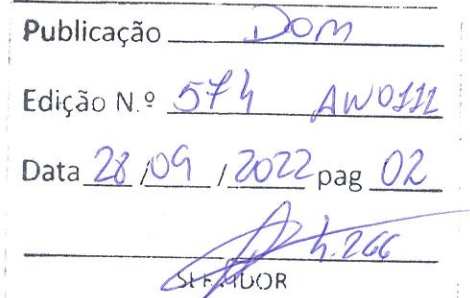 Publicação DOM
Edição N.º 574 ANO III
Data 28/09/2022 pag 02
4.266
SERVIDOR